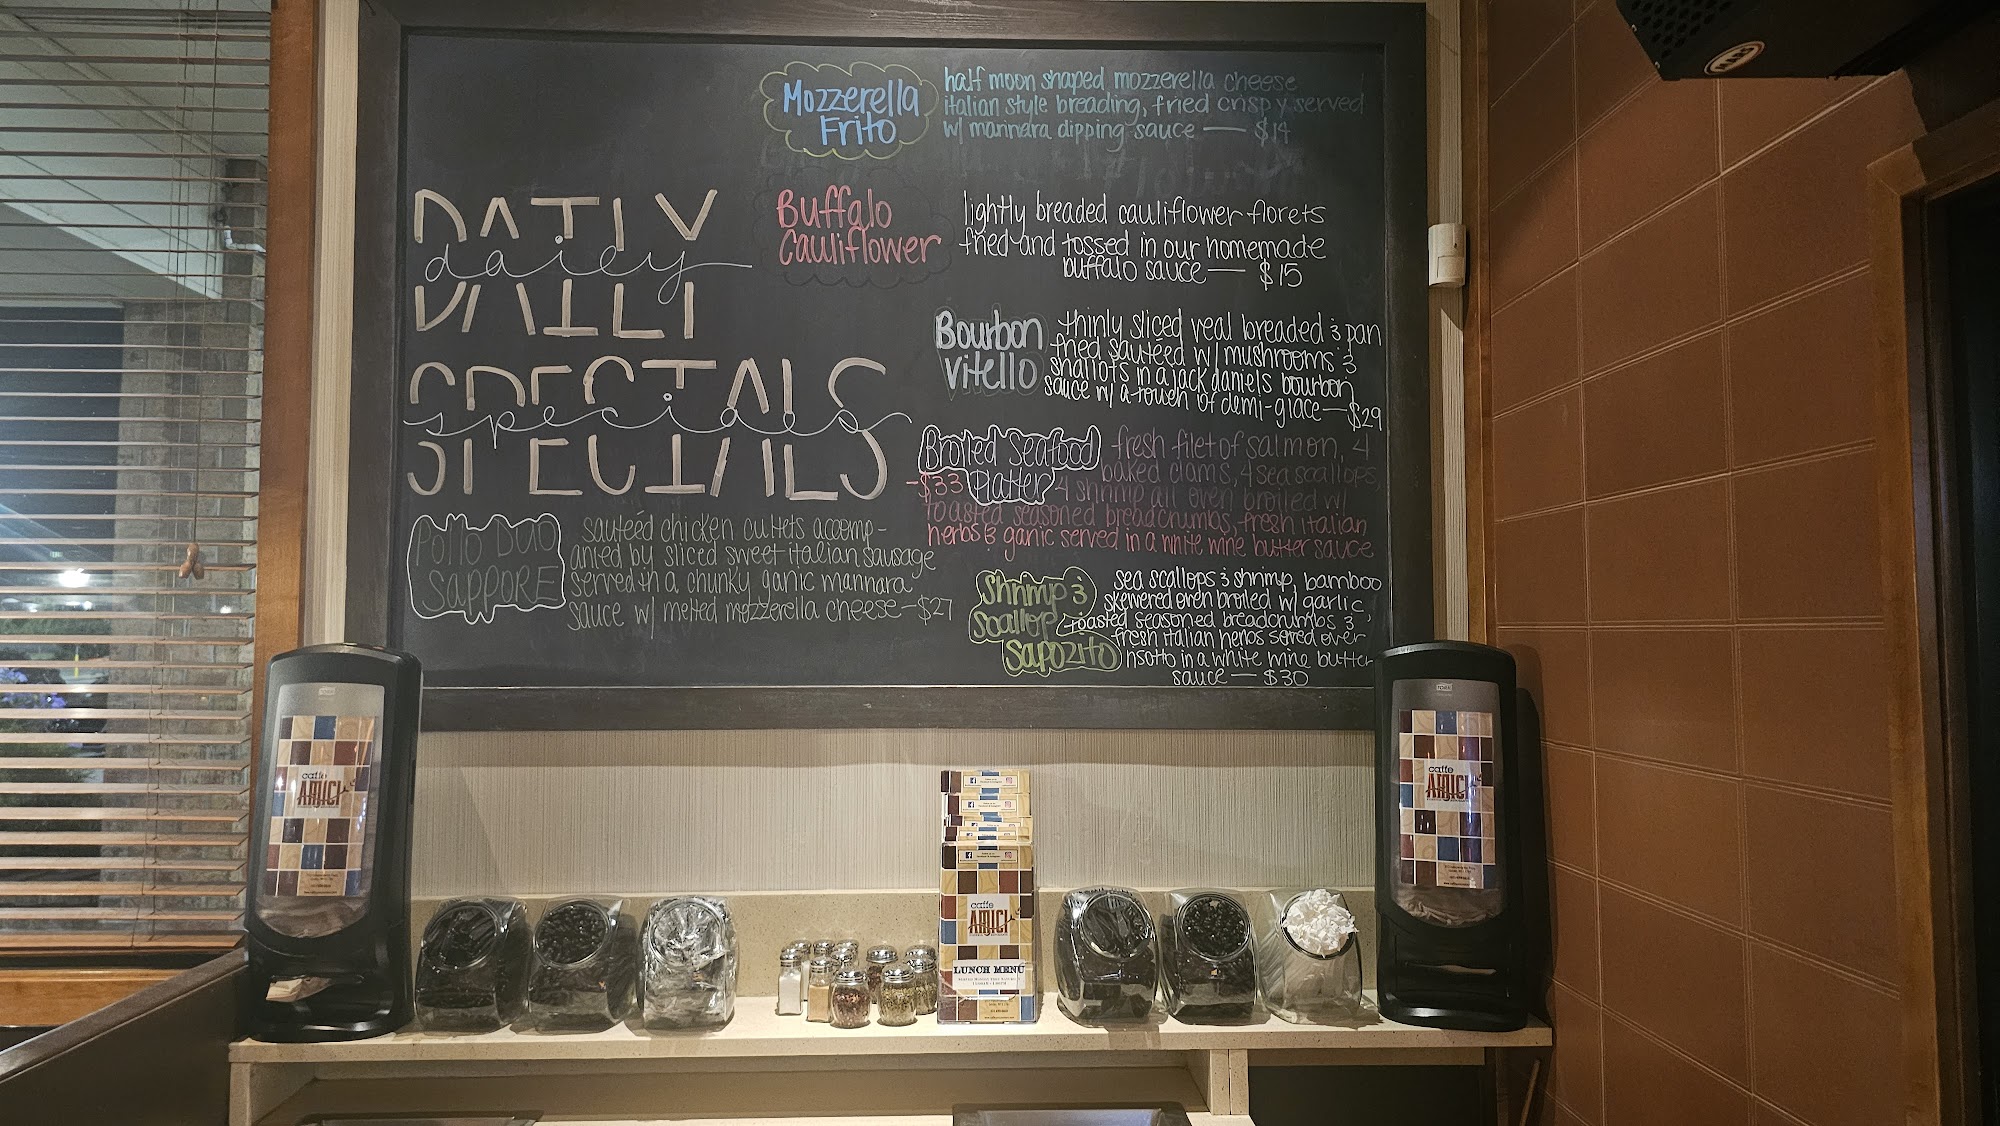 Mozzerella
Frito
half moon shaped mozzerella cheese
italian style breading, fried crispy served
w/ marinara dipping sauce — $14
DAILY
daily
SPECIALS
specials
Buffalo
Cauliflower
lightly breaded cauliflower florets
fried and tossed in our homemade
buffalo sauce — $15
Bourbon
Vitello
thinly sliced veal breaded & pan
fried sautéed w/ mushrooms &
shallots in a jack daniels bourbon
sauce w/ a touch of demi-glace — $29
Broiled Seafood
Platter
- $33
fresh filet of salmon, 4
baked clams, 4 sea scallops,
4 shrimp all oven broiled w/
toasted seasoned breadcrumbs, fresh italian
herbs & garlic served in a white wine butter sauce
Pollo Duo
SAPPORE
sautéed chicken cutlets accomp-
anied by sliced sweet italian sausage
served in a chunky garlic marinara
sauce w/ melted mozzerella cheese - $27
Shrimp &
Scallop
Sapozito
sea scallops & shrimp, bamboo
skewered oven broiled w/ garlic,
toasted seasoned breadcrumbs &
fresh italian herbs served over
risotto in a white wine butter
sauce — $30
caffe
AMICI
caffe
AMICI
caffe
AMICI
LUNCH MENU